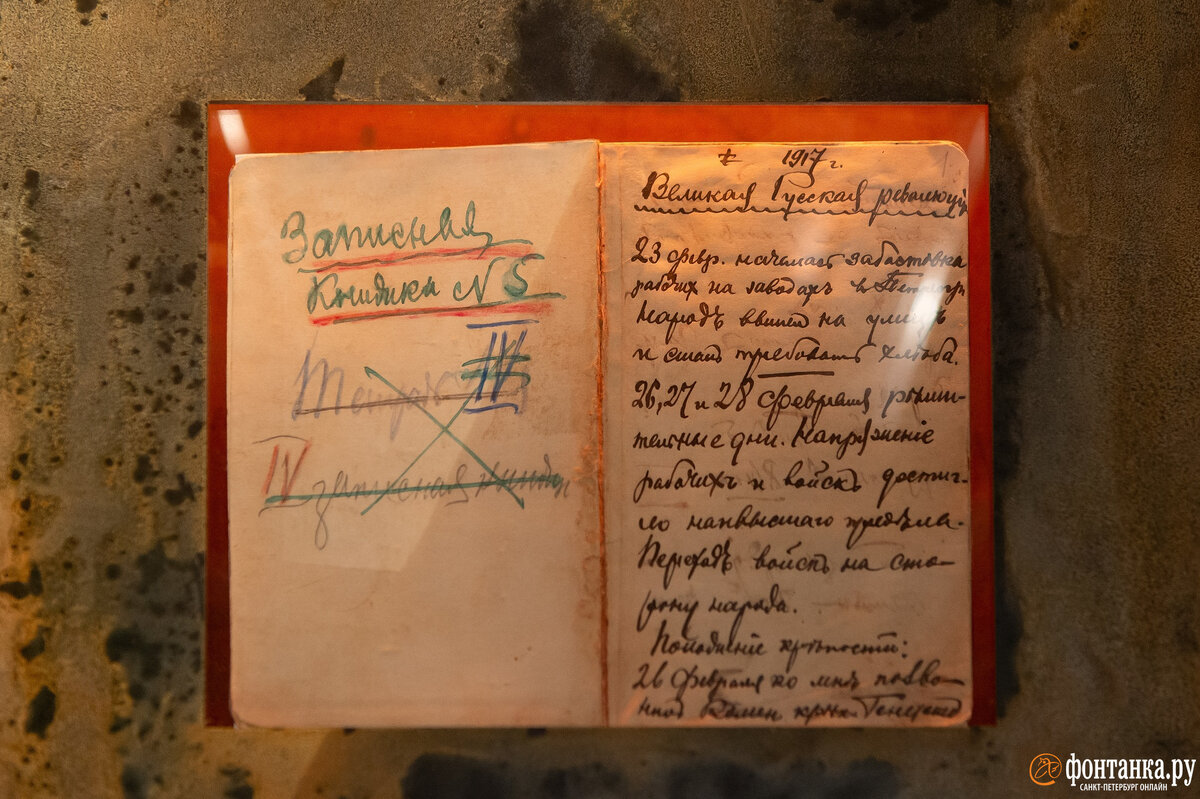 Записная
Книжка № 5
Тетрадь IV
IV записная книжка
1917 г.
Великая Русская революція
23 февр. началась забастовка
рабочих на заводахъ в Петрогр
Народъ вышел на улицъ
и сталъ требовать хлѣба.
26, 27 и 28 февраля рѣши-
тельные дни. Напряженіе
рабочихъ и войскъ достиг-
ло наивысшаго предѣла.
Переходъ войскъ на сто-
рону народа.
Положеніе крѣпости:
26 февраля ко мнѣ позво-
нил Комен. крѣп.
фонтанка.ру
САНКТ-ПЕТЕРБУРГ ОНЛАЙН